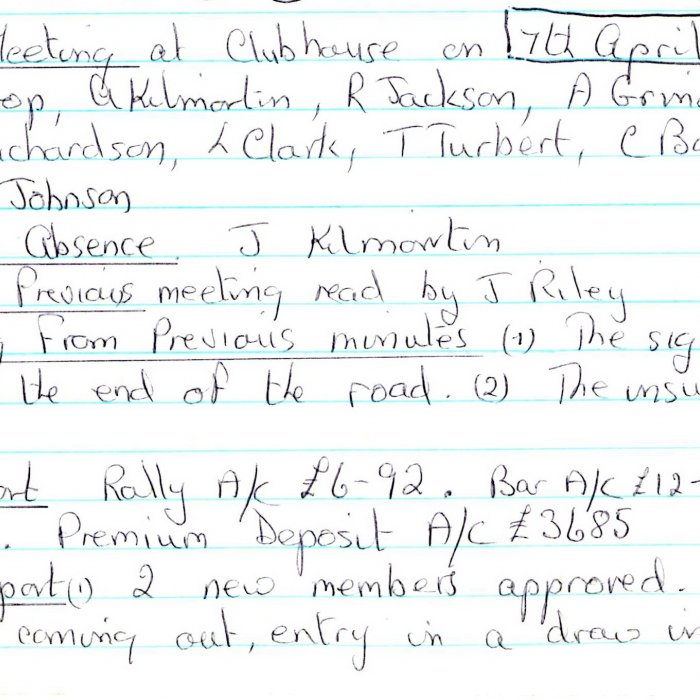 Meeting at Clubhouse on 7th April
op, G Kilmartin, R Jackson, A Grim
chardson, L Clark, T Turbert, C Ba
Johnson
Absence. J Kilmartin
Previous meeting read by J Riley
From Previous minutes (1) The sig
the end of the road. (2) The insu
ort Rally A/C £6-92. Bar A/C £12-
. Premium Deposit A/C £3685
port (1) 2 new members approved.
coming out, entry in a draw in